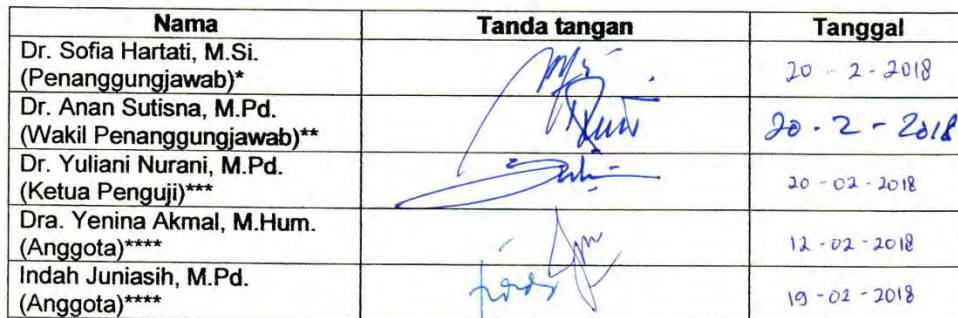 Nama Tanda tangan Tanggal
Dr. Sofia Hartati, M.Si.
(Penanggungjawab)* 20 - 2 - 2018
Dr. Anan Sutisna, M.Pd.
(Wakil Penanggungjawab)** 20 - 2 - 2018
Dr. Yuliani Nurani, M.Pd.
(Ketua Penguji)*** 20 - 02 - 2018
Dra. Yenina Akmal, M.Hum.
(Anggota)**** 12 - 02 - 2018
Indah Juniasih, M.Pd.
(Anggota)**** 19 - 02 - 2018